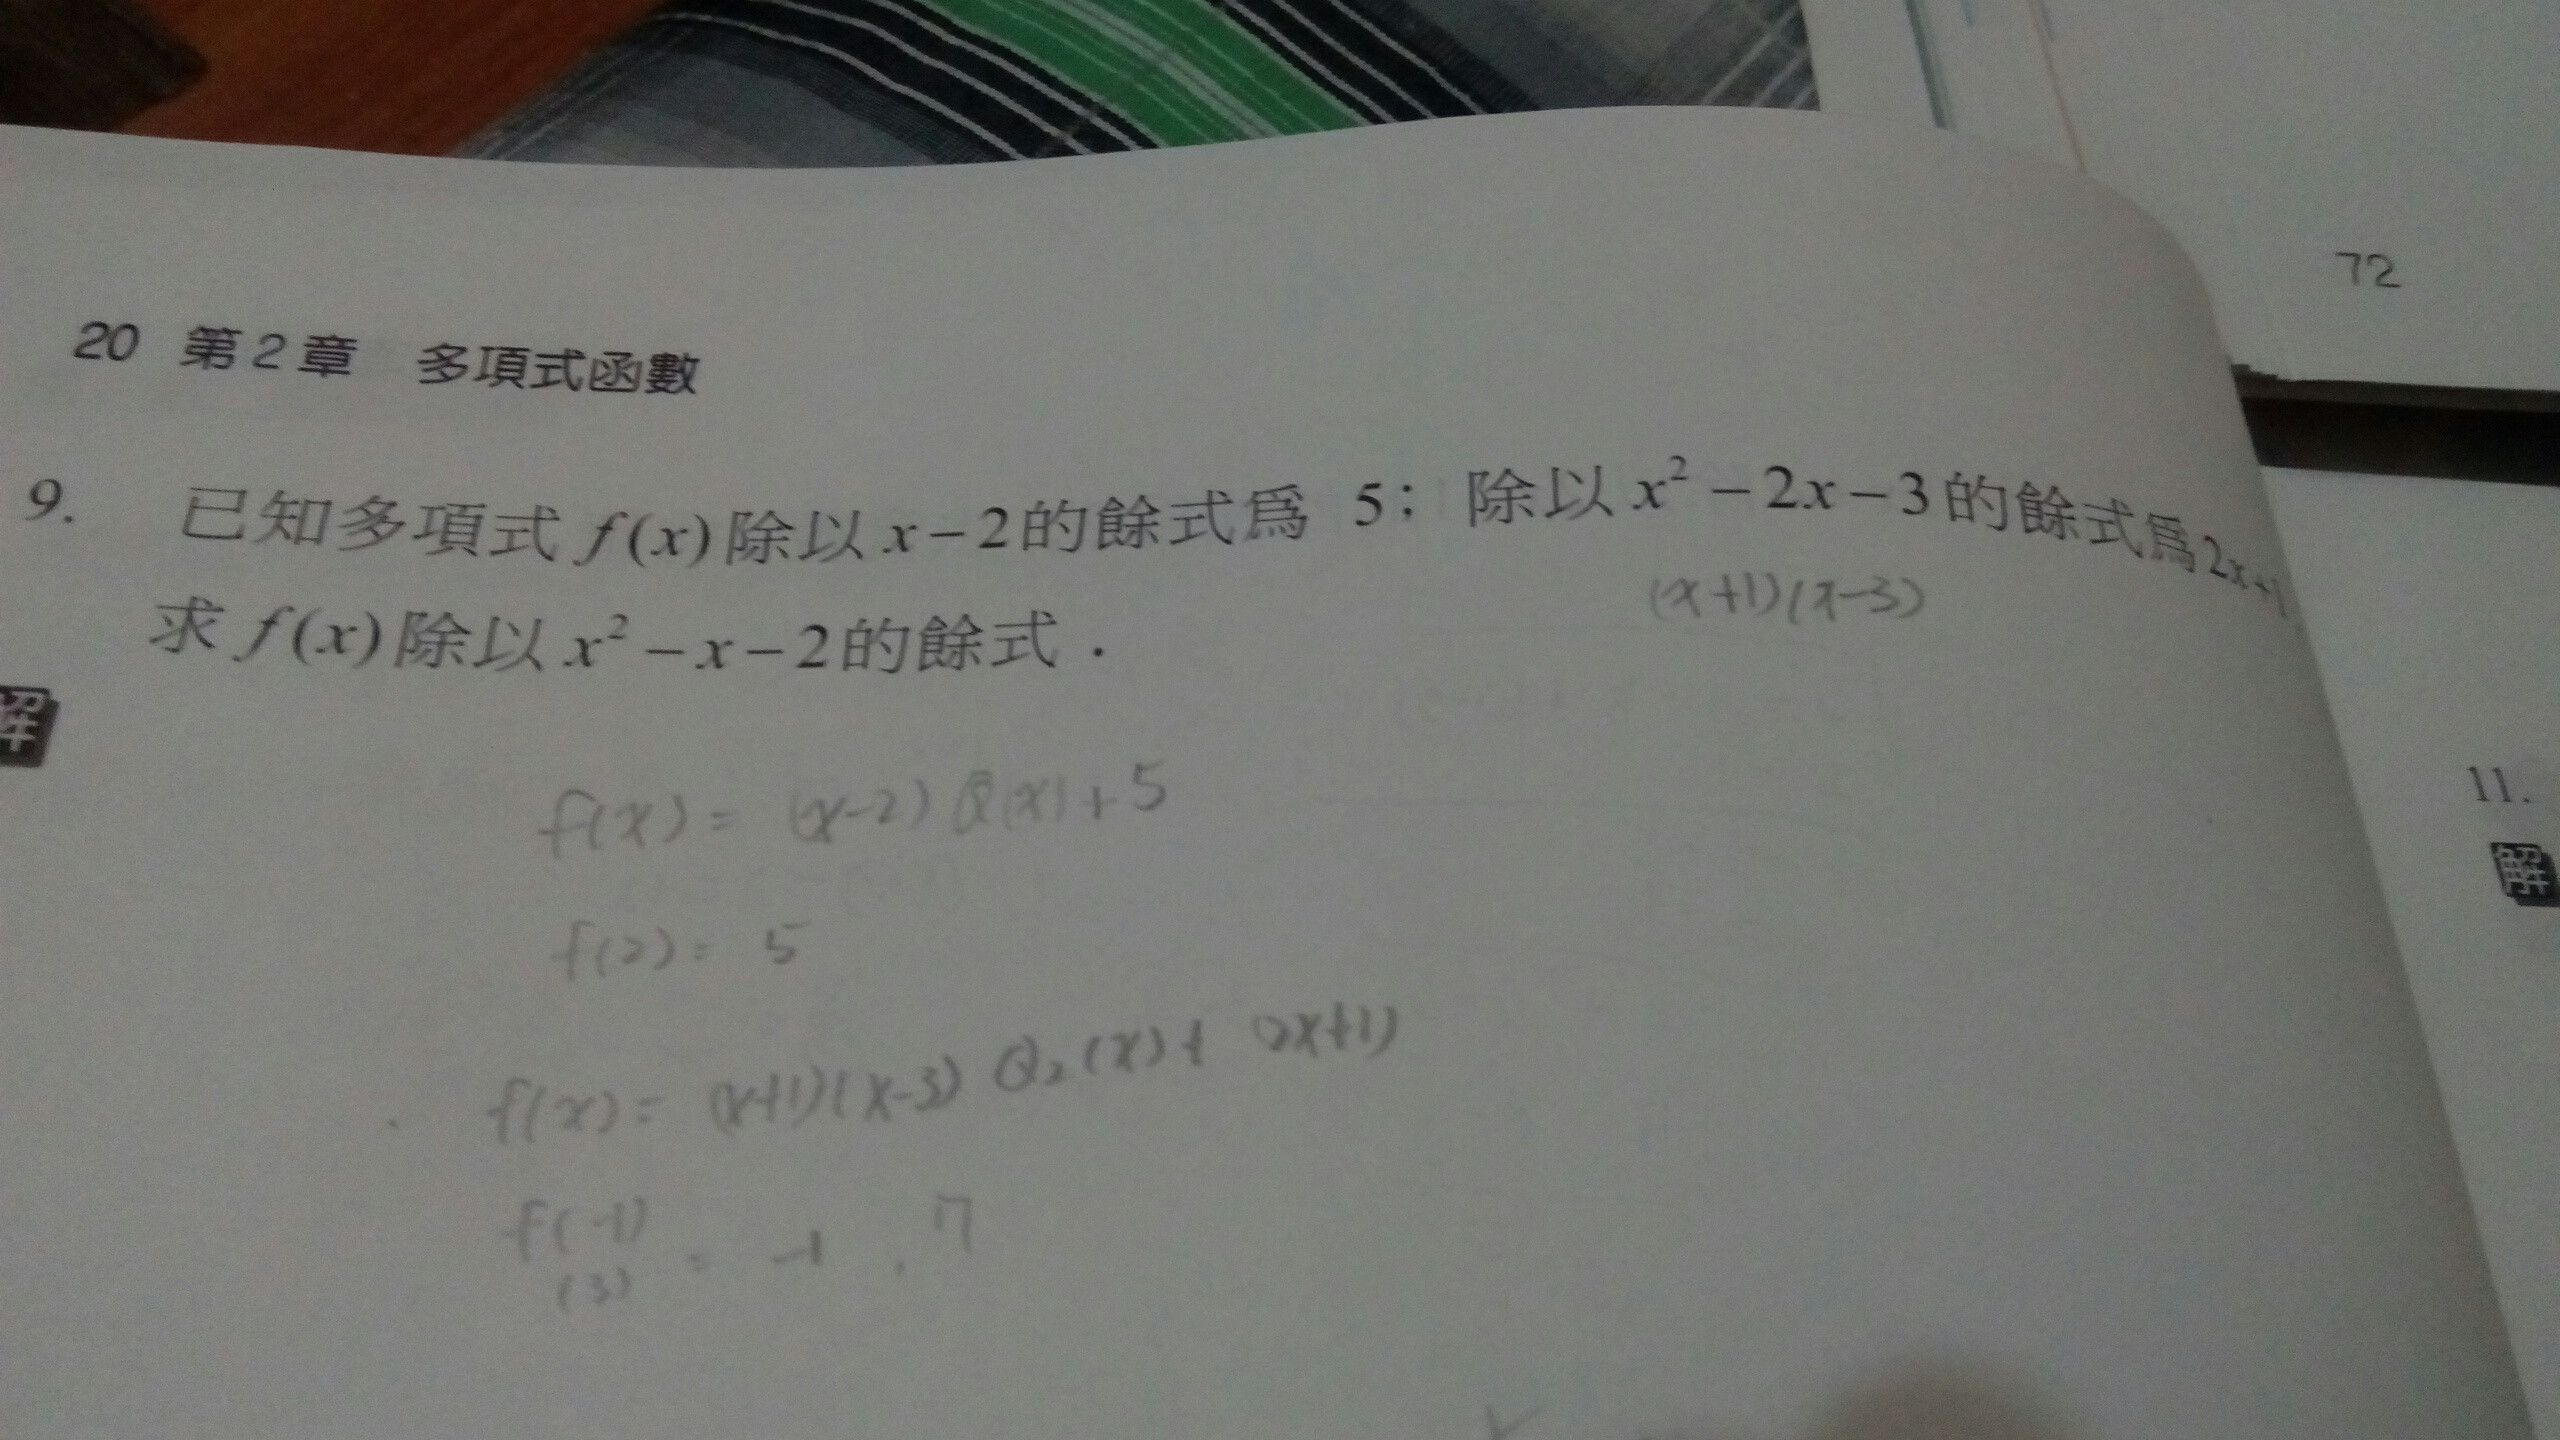 72
20 第2章 多項式函數
9. 已知多項式 f(x) 除以 x-2 的餘式爲 5；除以 x²-2x-3 的餘式爲 2x+1
(x+1)(x-3)
求 f(x) 除以 x²-x-2 的餘式.
解
f(x)= (x-2) Q(x)+5
f(2)= 5
f(x)= (x+1)(x-3) Q₂(x)+ 2x+1)
f(-1) = -1 , 7
(3)
11.
解